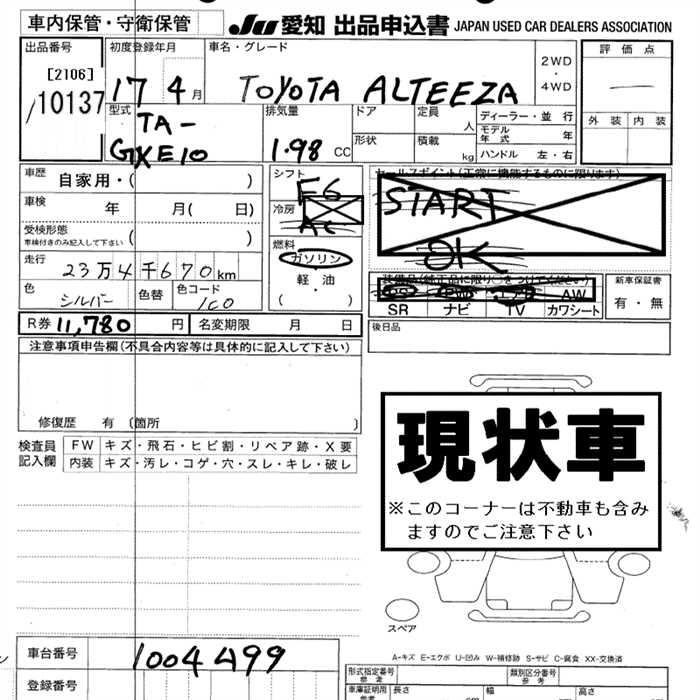 車内保管・守衛保管
JU 愛知 出品申込書 JAPAN USED CAR DEALERS ASSOCIATION
出品番号
[2106]
10137
初度登録年月
17 4月
車名・グレード
TOYOTA ALTEEZA
2WD
4WD
評価点
外装 内装
型式
TA-
GXE10
排気量
1.98 CC
ドア
形状
定員 人
積載 kg
ディーラー・並行
モデル年式 年
ハンドル 左・右
車歴 自家用・( )
車検 年 月( 日)
受検形態
車検付きのみ記入して下さい ( )
走行 23万4千670km
色 シルバー 色替 色コード 1C0
シフト F6
冷房 AC
燃料
ガソリン
軽・油
( )
セールスポイント(正常に機能するものに限ります)
START
OK
装備品(純正品に限り○をつけてください)
AW
SR ナビ TV カワシート
新車保証書
有・無
R券 11,780円 名変期限 月 日
後日品
注意事項申告欄(不具合内容等は具体的に記入して下さい)
修復歴 有 (箇所 )
検査員記入欄
FW キズ・飛石・ヒビ割・リペア跡・X要
内装 キズ・汚レ・コゲ・穴・スレ・キレ・破レ
現状車
※このコーナーは不動車も含み
ますのでご注意下さい
スペア
A-キズ E-エクボ U-凹み W-補修跡 S-サビ C-腐食 XX-交換済
車台番号 1004499
登録番号
形式指定番号
参考
類別区分番号
参考
車庫証明用
参考
長さ 幅 高さ